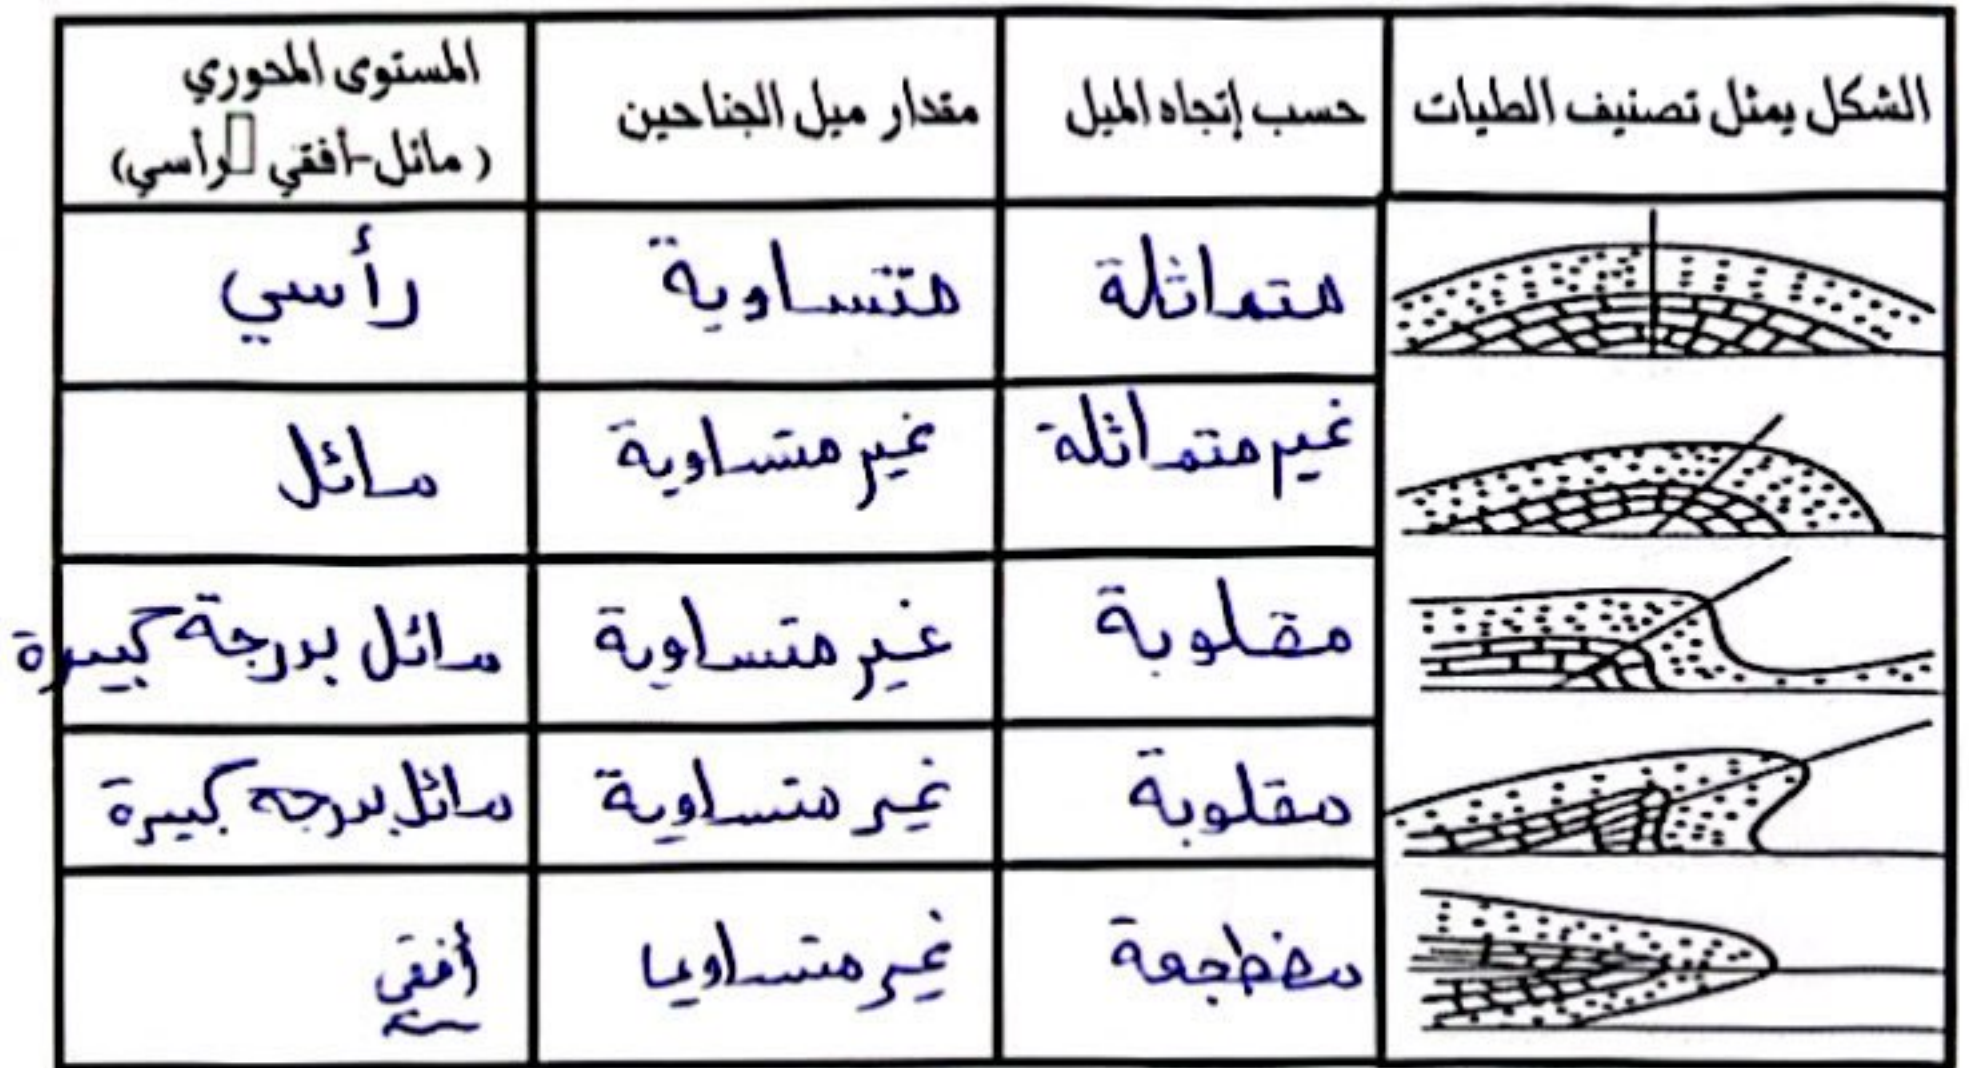 الشكل يمثل تصنيف الطيات
حسب إتجاه الميل
مقدار ميل الجناحين
المستوى المحوري
( مائل-أفقي رأسي)
متماثلة
متساوية
رأسي
غير متماثلة
غير متساوية
مائل
مقلوبة
غير متساوية
مائل بدرجة كبيرة
مقلوبة
غير متساوية
مائل بدرجه كبيرة
مضطجعة
غير متساويا
أفقي